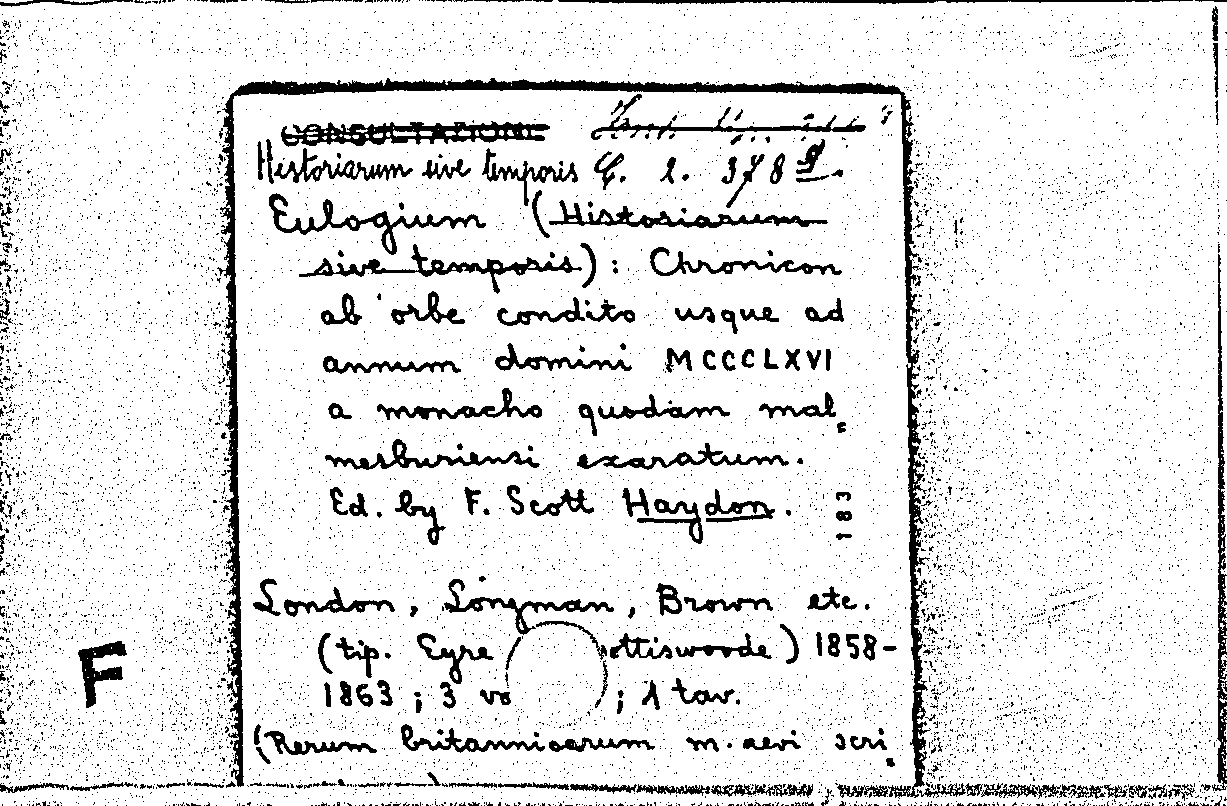 CONSULTAZIONE
Historiarum sive temporis G. 2. 378
Eulogium (Historiarum
sive temporis) : Chronicon
ab orbe condito usque ad
annum domini MCCCLXVI
a monacho quodam mal=
mesburiensi exaratum.
Ed. by F. Scott Haydon.
183
London, Longman, Brown etc.
(tip. Eyre ottiswoode) 1858-
1863 ; 3 vo ; 1 tav.
(Rerum britannicarum m. aevi scri
F